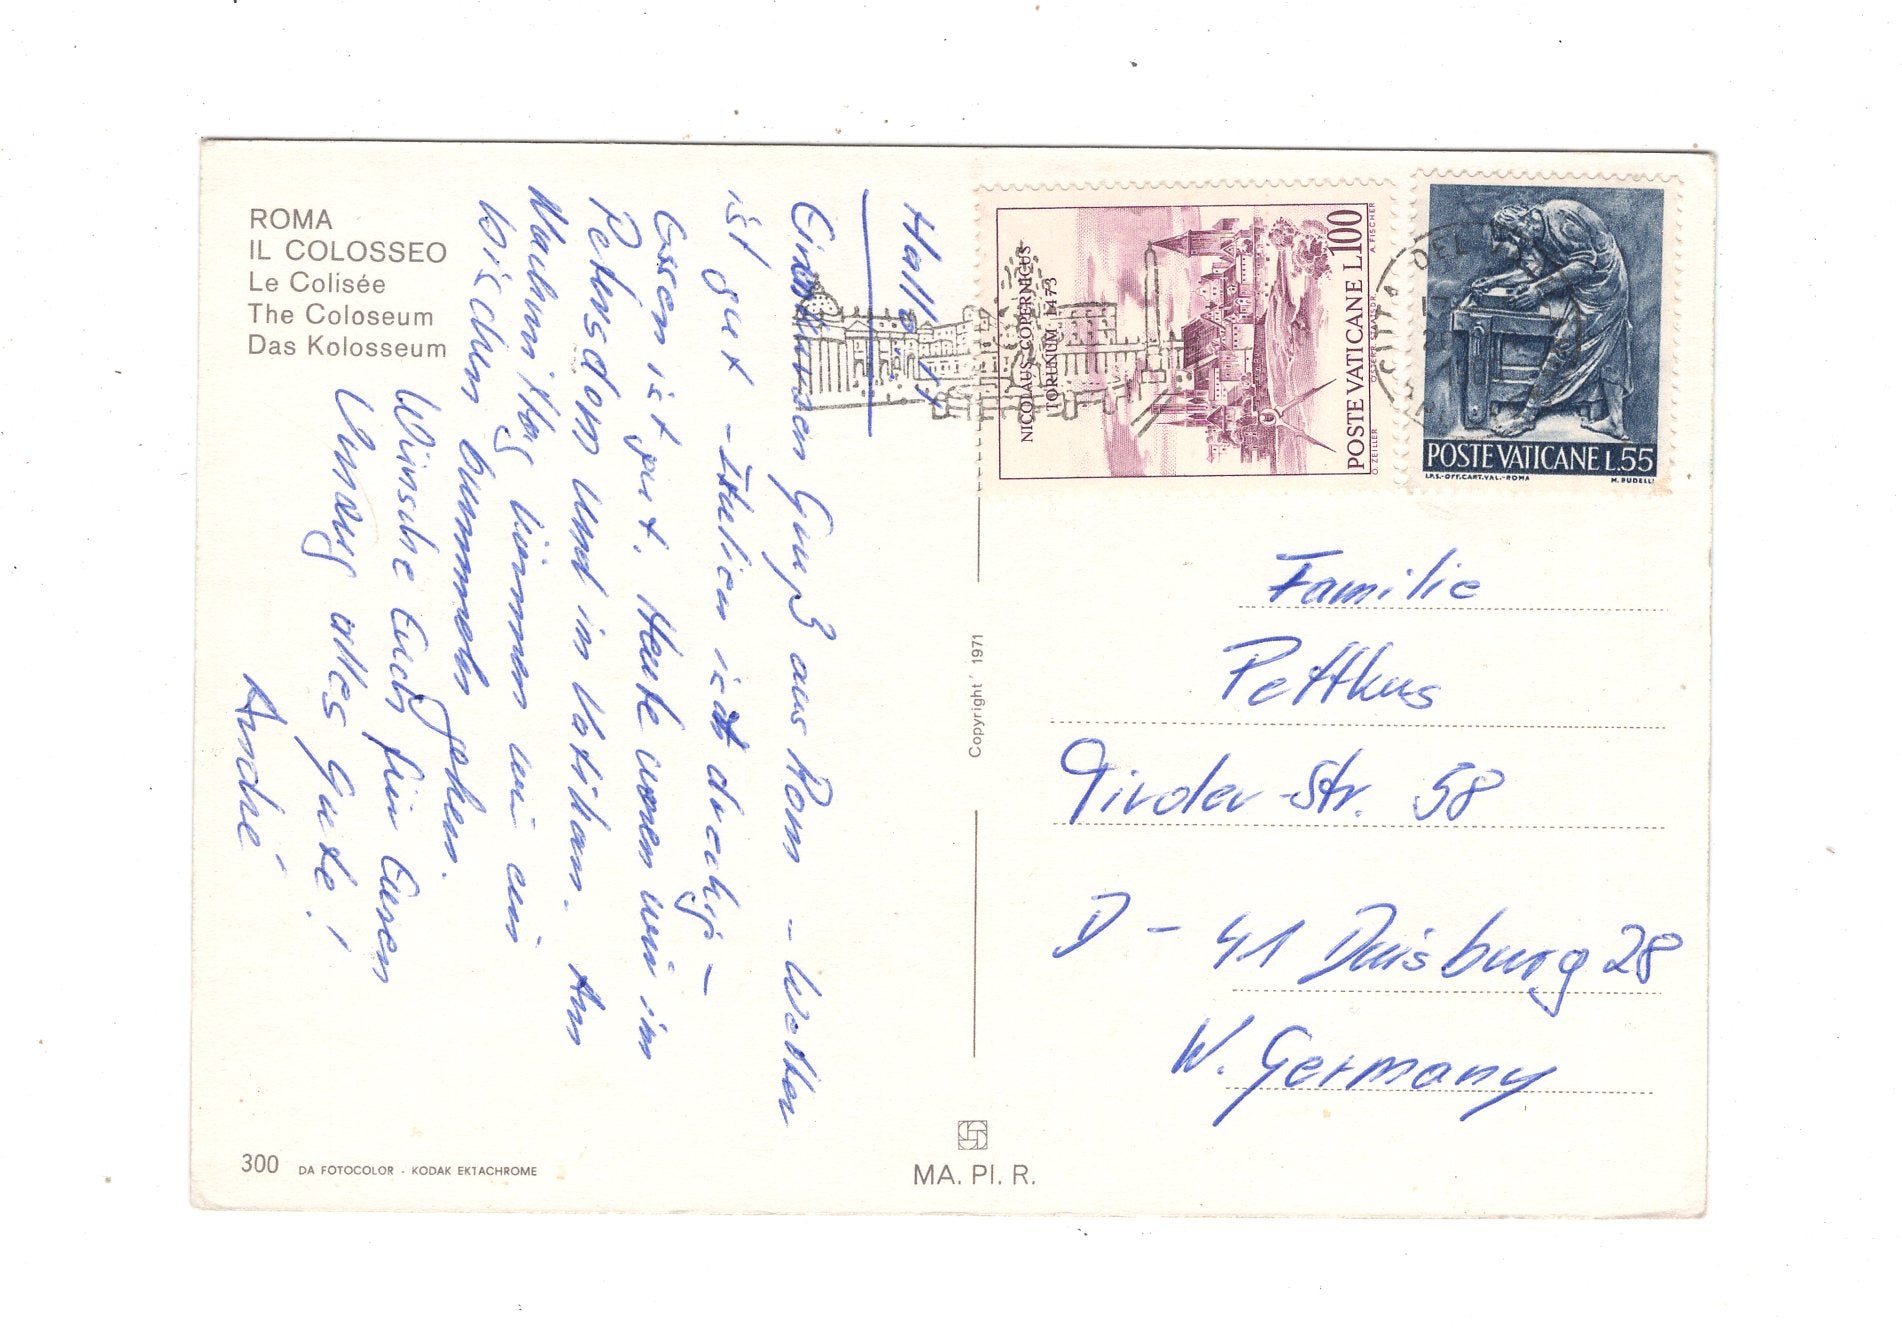 ROMA
IL COLOSSEO
Le Colisée
The Coloseum
Das Kolosseum
Hallo
Gruß aus Rom - Wetter
ist gut - Italien ist dreckig -
Essen ist gut. Heute waren wir im
Petersdom und in Vatikan. Am
Nachmittag können wir ein
bischen bummeln gehen.
Wünsche Euch für Euren
Umzug alles Gute!
André
NICOLAUS COPERNICUS
TORUNIUM 1473
POSTE VATICANE L.100
O. ZEILER
A. FISCHER
POSTE VATICANE L.55
I.P.S.-OFF.CART.VAL.-ROMA
M. RUDELLI
Copyright 1971
Familie
Pettkus
Tiroler-Str. 58
D - 41 Duisburg 28
W. Germany
300 DA FOTOCOLOR - KODAK EKTACHROME
MA. PI. R.